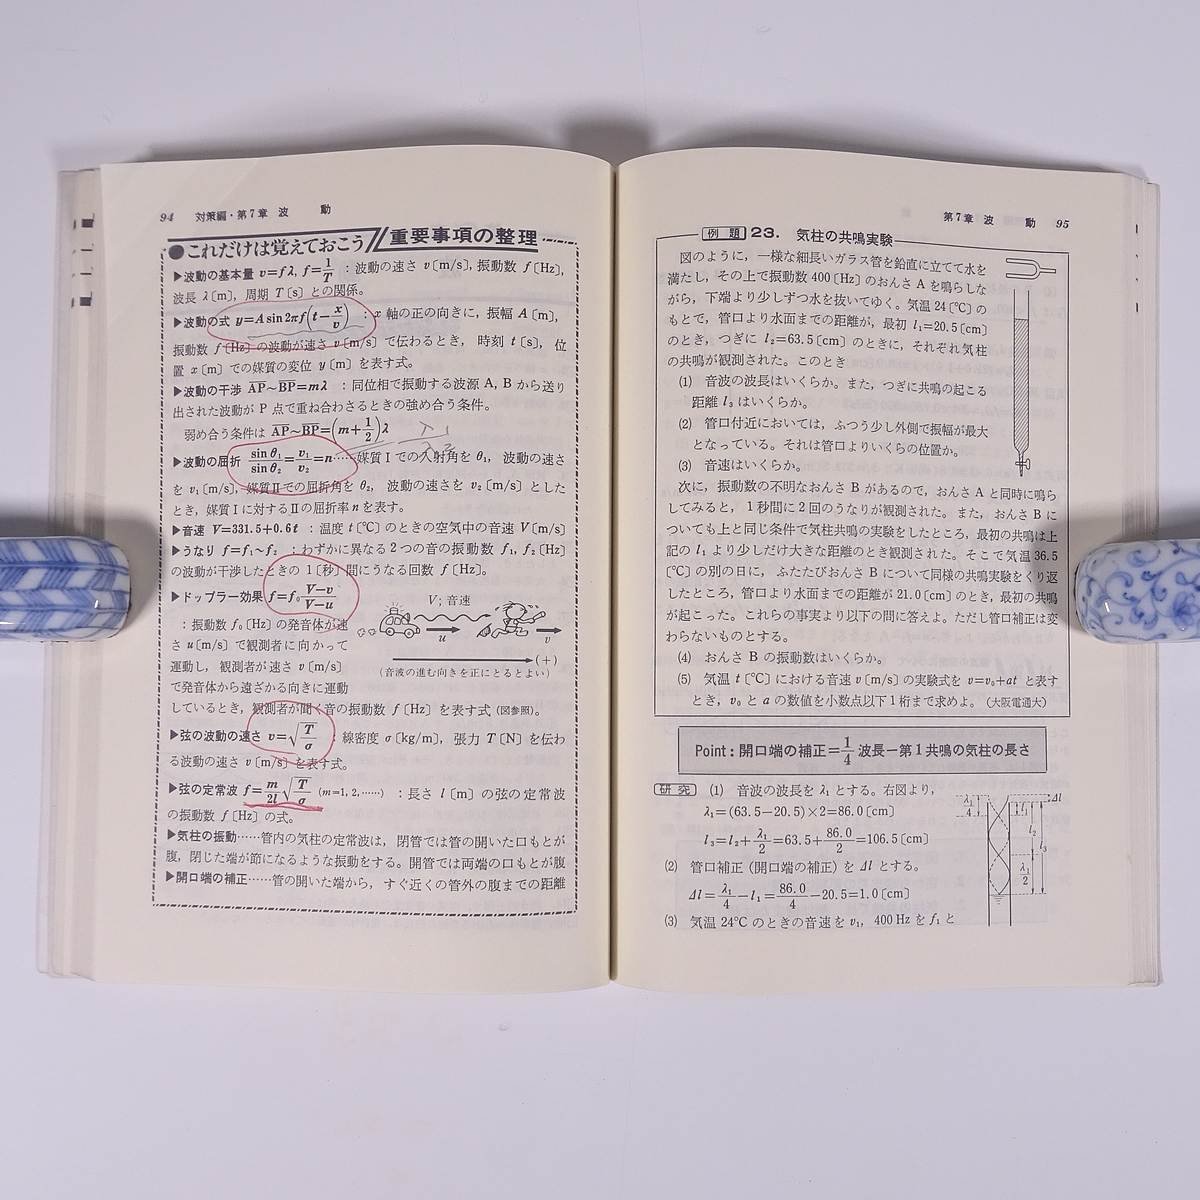 94 対策編・第7章 波 動
●これだけは覚えておこう 重要事項の整理
▶波動の基本量 v=fλ, f=1/T :波動の速さ v〔m/s〕, 振動数 f〔Hz〕,
波長 λ〔m〕, 周期 T〔s〕との関係。
▶波動の式 y=A sin2πf(t−x/v) :x 軸の正の向きに, 振幅 A〔m〕,
振動数 f〔Hz〕の波動が速さ v〔m/s〕で伝わるとき, 時刻 t〔s〕, 位
置 x〔m〕での媒質の変位 y〔m〕を表す式。
▶波動の干渉 AP~BP=mλ :同位相で振動する波源 A, B から送り
出された波動が P 点で重ね合わさるときの強め合う条件。
弱め合う条件は AP~BP=(m+1/2)λ
▶波動の屈折 sinθ₁/sinθ₂=v₁/v₂=n……媒質Ⅰでの入射角を θ₁, 波動の速さ
を v₁〔m/s〕, 媒質Ⅱでの屈折角を θ₂, 波動の速さを v₂〔m/s〕とした
とき, 媒質Ⅰに対するⅡの屈折率 n を表す。
▶音速 V=331.5+0.6t :温度 t〔℃〕のときの空気中の音速 V〔m/s〕
▶うなり f=f₁~f₂ :わずかに異なる2つの音の振動数 f₁, f₂〔Hz〕
の波動が干渉したときの 1〔秒〕間にうなる回数 f〔Hz〕。
▶ドップラー効果 f=f₀ V−v/V−u
V;音速
u
v
(+)
(音波の進む向きを正にとるとよい)
:振動数 f₀〔Hz〕の発音体が速
さ u〔m/s〕で観測者に向かって
運動し, 観測者が速さ v〔m/s〕
で発音体から遠ざかる向きに運動
しているとき, 観測者が聞く音の振動数 f〔Hz〕を表す式(図参照)。
▶弦の波動の速さ v=√T/σ :線密度 σ〔kg/m〕, 張力 T〔N〕を伝わ
る波動の速さ v〔m/s〕を表す式。
▶弦の定常波 f=m/2l√T/σ (m=1, 2, ……) :長さ l〔m〕の弦の定常波
の振動数 f〔Hz〕の式。
▶気柱の振動……管内の気柱の定常波は, 閉管では管の開いた口もとが
腹, 閉じた端が節になるような振動をする。開管では両端の口もとが腹
▶開口端の補正……管の開いた端から, すぐ近くの管外の腹までの距離
第7章 波 動 95
例題 23. 気柱の共鳴実験
図のように, 一様な細長いガラス管を鉛直に立てて水を
満たし, その上で振動数 400〔Hz〕のおんさ A を鳴らしな
がら, 下端より少しずつ水を抜いてゆく。気温 24〔℃〕の
もとで, 管口より水面までの距離が, 最初 l₁=20.5〔cm〕
のとき, つぎに l₂=63.5〔cm〕のときに, それぞれ気柱
の共鳴が観測された。このとき
(1) 音波の波長はいくらか。また, つぎに共鳴の起こる
距離 l₃ はいくらか。
(2) 管口付近においては, ふつう少し外側で振幅が最大
となっている。それは管口よりいくらの位置か。
(3) 音速はいくらか。
次に, 振動数の不明なおんさ B があるので, おんさ A と同時に鳴ら
してみると, 1秒間に2回のうなりが観測された。また, おんさ B に
ついても上と同じ条件で気柱共鳴の実験をしたところ, 最初の共鳴は上
記の l₁ より少しだけ大きな距離のとき観測された。そこで気温 36.5
〔℃〕の別の日に, ふたたびおんさ B について同様の共鳴実験をくり返
したところ, 管口より水面までの距離が 21.0〔cm〕のとき, 最初の共鳴
が起こった。これらの事実より以下の問に答えよ。ただし管口補正は変
わらないものとする。
(4) おんさ B の振動数はいくらか。
(5) 気温 t〔℃〕における音速 v〔m/s〕の実験式を v=v₀+at と表す
とき, v₀ と a の数値を小数点以下1桁まで求めよ。(大阪電通大)
Point:開口端の補正=1/4 波長−第1共鳴の気柱の長さ
研究 (1) 音波の波長を λ₁ とする。右図より,
λ₁=(63.5−20.5)×2=86.0〔cm〕
l₃=l₂+λ₁/2=63.5+86.0/2=106.5〔cm〕
(2) 管口補正(開口端の補正)を Δl とする。
Δl=λ₁/4−l₁=86.0/4−20.5=1.0〔cm〕
(3) 気温 24℃ のときの音速を v₁, 400 Hz を f₁ と
λ₁/4
Δl
l₁
l₂
l₃
λ₁/2